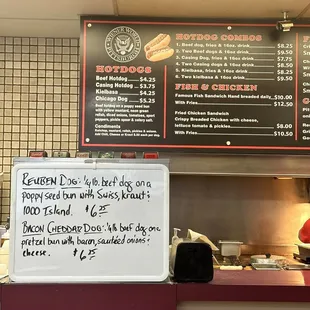 HOTDOGS
Beef Hotdog ..... $4.25
Casing Hotdog .... $3.75
Kielbasa ..... $4.25
Chicago Dog ..... $5.25
Beef hotdog on a poppy seed bun
with yellow mustard, neon green
relish, diced onions, tomatoes, sport
peppers, pickle spear & celery salt.
Condiments
HOTDOG COMBOS
1. Beef Dog, fries & 16oz. drink $8.25
2. Two Beef dogs & 16oz. drink $9.50
3. Casing Dog, fries & 16oz. drink $7.75
4. Two Casing dogs & 16oz. drink $8.50
5. Kielbasa, fries & 16oz. drink $8.25
6. Two kielbasa & 16oz. drink $9.50
FISH & CHICKEN
Famous Fish Sandwich Hand breaded daily $10.00
With Fries $12.50
Fried Chicken Sandwich
Crispy Breaded Chicken with cheese,
lettuce tomato & pickles $8.00
With Fries $10.50
REUBEN DOG: 1/4 lb. beef dog on a
poppy seed bun with Swiss, kraut &
1000 Island. $6.25
BACON CHEDDAR DOG: 1/4 lb beef dog on a
pretzel bun with bacon, sautéed onions &
cheese. $6.25